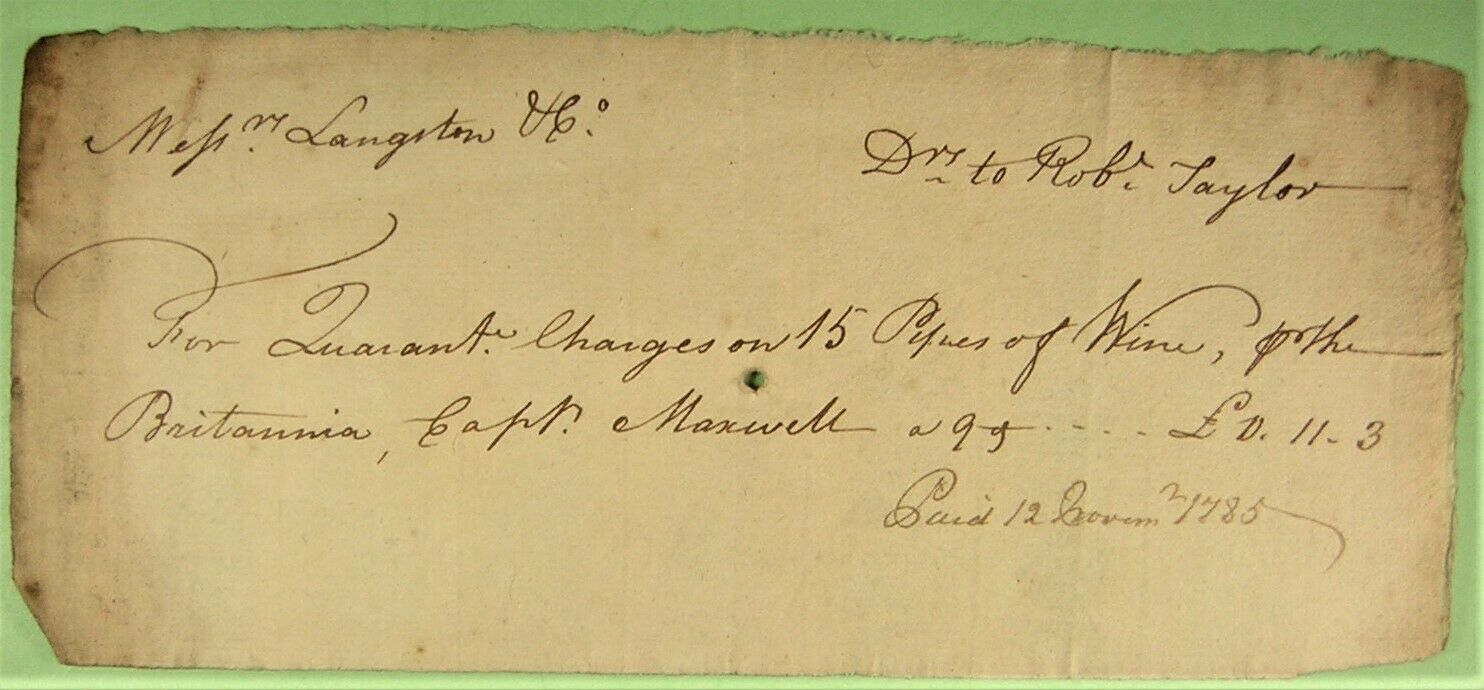 Messrs. Langston & Co.
Drs. to Robt. Taylor
For Quarante. Charges on 15 Pipes of Wine, pr the
Britannia, Capt. Maxwell a 9d £0.11-3
Paid 12 Novemr 1785